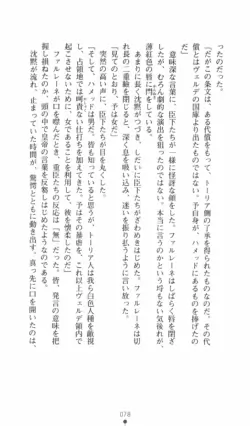 ったのだった。
「だがこの条文は、ある代償をもって、トーリア側の了承を得られたものなのだ。その代
償とはヴェルデの国庫より出したものではない。予自身が、ハメッドにあるものを捧げたの
だ」
意味深な言葉に、臣下たちが一様に怪訝な顔をした。ファルレーネはしばらく唇を閉ざし
たが、むろん劇的な演出を狙ったのではない。本当に言うのかすさまじい気後れが、
薄紅色の唇に門をしている。
あまりに沈黙がつづき、しだいに臣下たちがざわめきはじめたころ、ファルレーネは切
れ長の二重瞼を閉じると、深く息を吸い込み、迷いを振り払うように言い放った。
「見てのとおり、予は女だ」
突然の高い声に、臣下たちが沈黙した。
「そして、ハメッドは男だ、皆も知っていると思うが、トーリア人は我ら白色人種を敵視
し、占領地では時に残酷な仕打ちを加えてきた。予はその暴虐を、これ以上ヴェルデ領内で
起こさないために、女であることを利用して、彼を懐柔したのだ」
ファルレーネが口を閉じたとき、重臣たちの反応は「無」だった。皆、発言の意味を把
握し損ねたのか、頭の中で皇帝の言葉を反芻しはじめたようなのである。
沈黙が流れ、止まっていた時間が、驚愕とともに動き出す。真っ先に口を開いたのは、
078